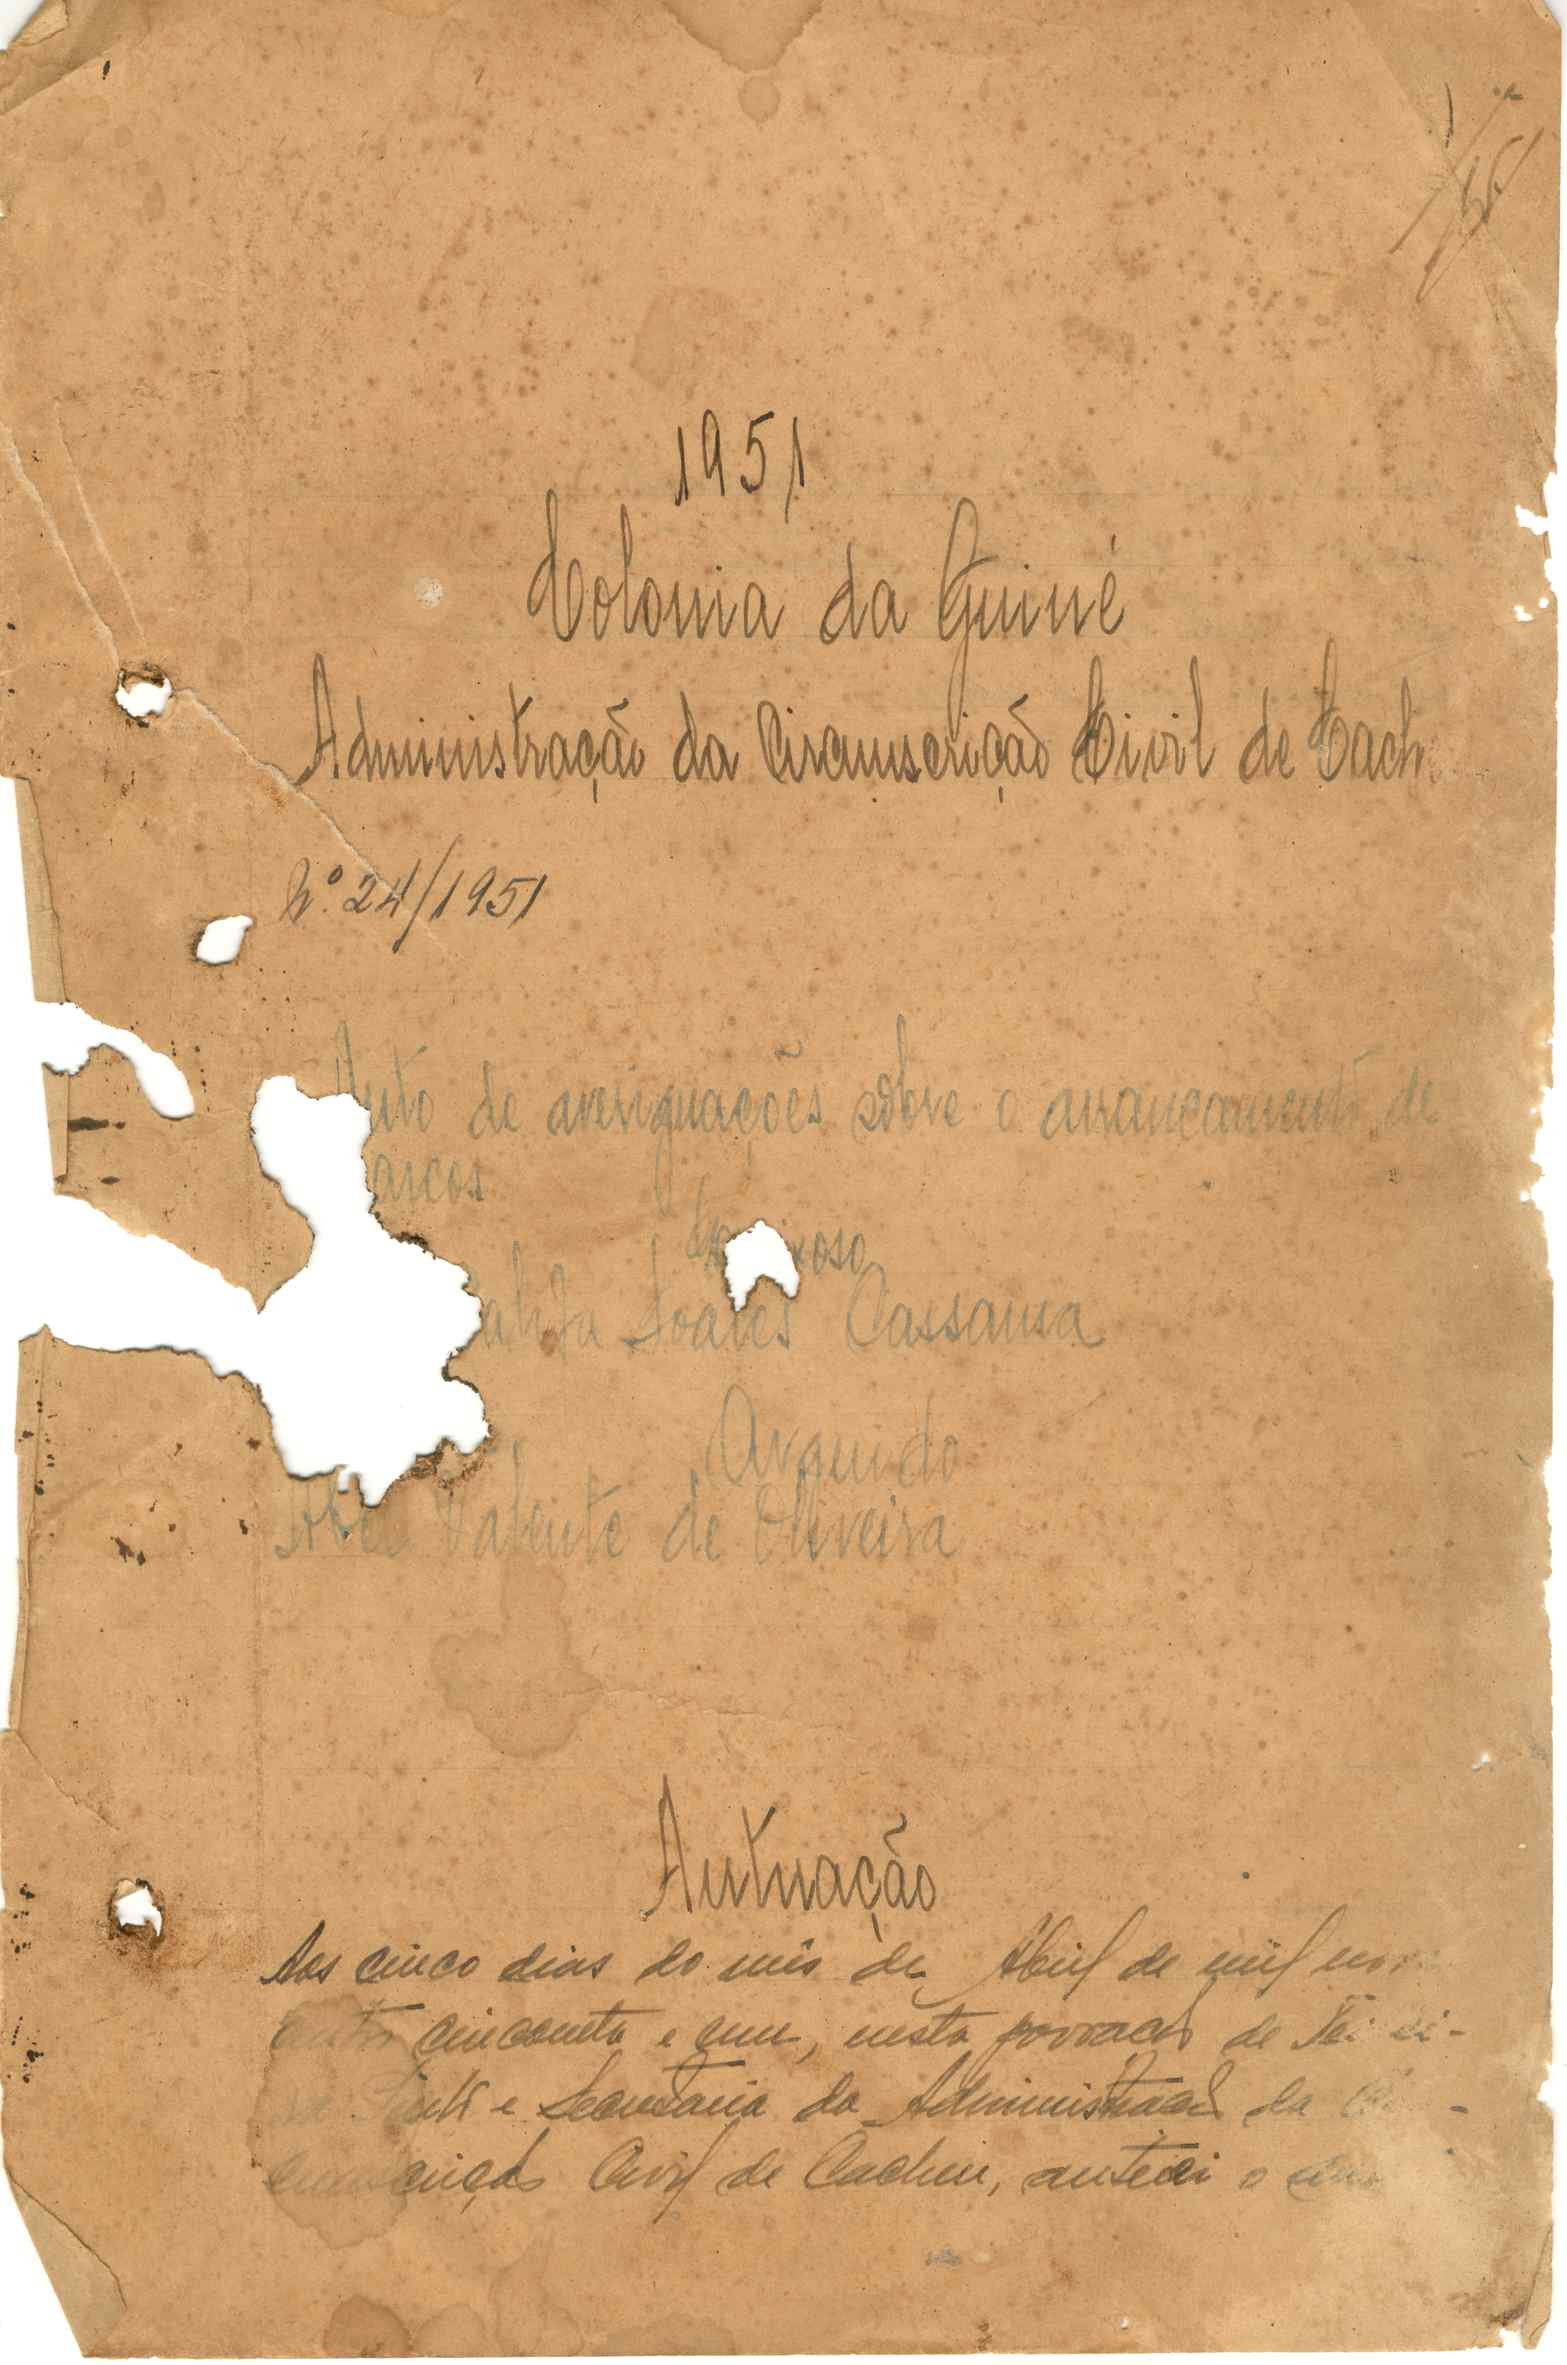 1951
Colonia da Guiné
Administração da Circunscrição Civil de Cach
Nº 24/1951
Auto de averiguações sobre o arrancamento de
arcos
xoso
alifa Soares Cassama
Arguido
Abel Valente de Oliveira
Autuação
Aos cinco dias do mês de Abril de mil nov
centos cincoenta e um, nesta povoação de Tei ei-
Pinto e Secretaria da Administração da
cunscrição Civil de Cacheu, autuei o